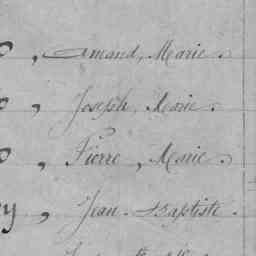 , Amand, Marie.
, Joseph, Marie.
, Pierre, Marie.
y, Jean-Baptiste.